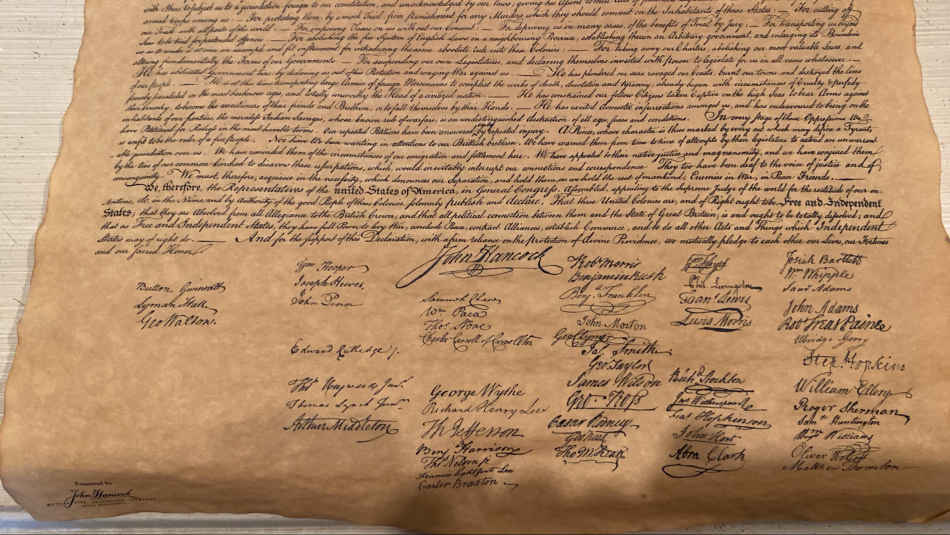 with others to subject us to a jurisdiction foreign to our constitution, and unacknowledged by our laws; giving his Assent to their
armed troops among us: — For protecting them, by a mock Trial, from punishment for any Murders which they should commit on the Inhabitants of these States: — For cutting off
our Trade with all parts of the world: — For imposing Taxes on us without our Consent: — For depriving us in many cases, of the benefits of Trial by jury: — For transporting us beyond
Seas to be tried for pretended offences — For abolishing the free System of English Laws in a neighbouring Province, establishing therein an Arbitrary government, and enlarging its Boundaries
so as to render it at once an example and fit instrument for introducing the same absolute rule into these Colonies: — For taking away our Charters, abolishing our most valuable Laws, and
altering fundamentally the Forms of our Governments: — For suspending our own Legislatures, and declaring themselves invested with power to legislate for us in all cases whatsoever. —
He has abdicated Government here, by declaring us out of his Protection and waging War against us. — He has plundered our seas, ravaged our Coasts, burnt our towns, and destroyed the lives
of our people. — He is at this time transporting large Armies of foreign Mercenaries to compleat the works of death, desolation and tyranny, already begun with circumstances of Cruelty & perfidy
paralleled in the most barbarous ages, and totally unworthy the Head of a civilized nation. — He has constrained our fellow Citizens taken Captive on the high Seas to bear Arms against
their Country, to become the executioners of their friends and Brethren, or to fall themselves by their Hands. — He has excited domestic insurrections amongst us, and has endeavoured to bring on the
inhabitants of our frontiers, the merciless Indian Savages, whose known rule of warfare, is an undistinguished destruction of all ages, sexes and conditions. In every stage of these Oppressions We
have Petitioned for Redress in the most humble terms: Our repeated Petitions have been answered by repeated injury. A Prince, whose character is thus marked by every act which may define a Tyrant,
is unfit to be the ruler of a free people. Nor have We been wanting in attentions to our British brethren. We have warned them from time to time of attempts by their legislature to extend an unwarrantable
We have reminded them of the circumstances of our emigration and settlement here. We have appealed to their native justice and magnanimity, and we have conjured them
by the ties of our common kindred to disavow these usurpations, which, would inevitably interrupt our connections and correspondence. They too have been deaf to the voice of justice and of
consanguinity. We must, therefore, acquiesce in the necessity, which denounces our Separation, and hold them, as we hold the rest of mankind, Enemies in War, in Peace Friends. —
We, therefore, the Representatives of the united States of America, in General Congress, Assembled, appealing to the Supreme Judge of the world for the rectitude of our in-
tentions, do, in the Name, and by Authority of the good People of these Colonies, solemnly publish and declare, That these United Colonies are, and of Right ought to be Free and Independent
States; that they are Absolved from all Allegiance to the British Crown, and that all political connection between them and the State of Great Britain, is and ought to be totally dissolved; and
that as Free and Independent States, they have full Power to levy War, conclude Peace, contract Alliances, establish Commerce, and to do all other Acts and Things which Independent
States may of right do. — And for the support of this Declaration, with a firm reliance on the protection of divine Providence, we mutually pledge to each other our Lives, our Fortunes
and our sacred Honor.
Button Gwinnett
Lyman Hall
Geo Walton.
Wm Hooper
Joseph Hewes,
John Penn
Edward Rutledge /.
Thos Heyward Junr.
Thomas Lynch Junr.
Arthur Middleton
John Hancock
Samuel Chase
Wm Paca
Thos Stone
Charles Carroll of Carrollton
George Wythe
Richard Henry Lee
Th Jefferson
Benj Harrison
Thos Nelson jr.
Francis Lightfoot Lee
Carter Braxton
Robt Morris
Benjamin Rush
Benj. Franklin
John Morton
Geo Clymer
Jas. Smith
Geo. Taylor
James Wilson
Geo. Ross
Caesar Rodney
Geo Read
Tho M:Kean
Wm Floyd
Phil. Livingston
Frans. Lewis
Lewis Morris
Richd. Stockton
Jno Witherspoon
Fras. Hopkinson
John Hart
Abra Clark
Josiah Bartlett
Wm Whipple
Saml Adams
John Adams
Robt Treat Paine
Elbridge Gerry
Step. Hopkins
William Ellery
Roger Sherman
Saml Huntington
Wm Williams
Oliver Wolcott
Matthew Thornton
John Hancock